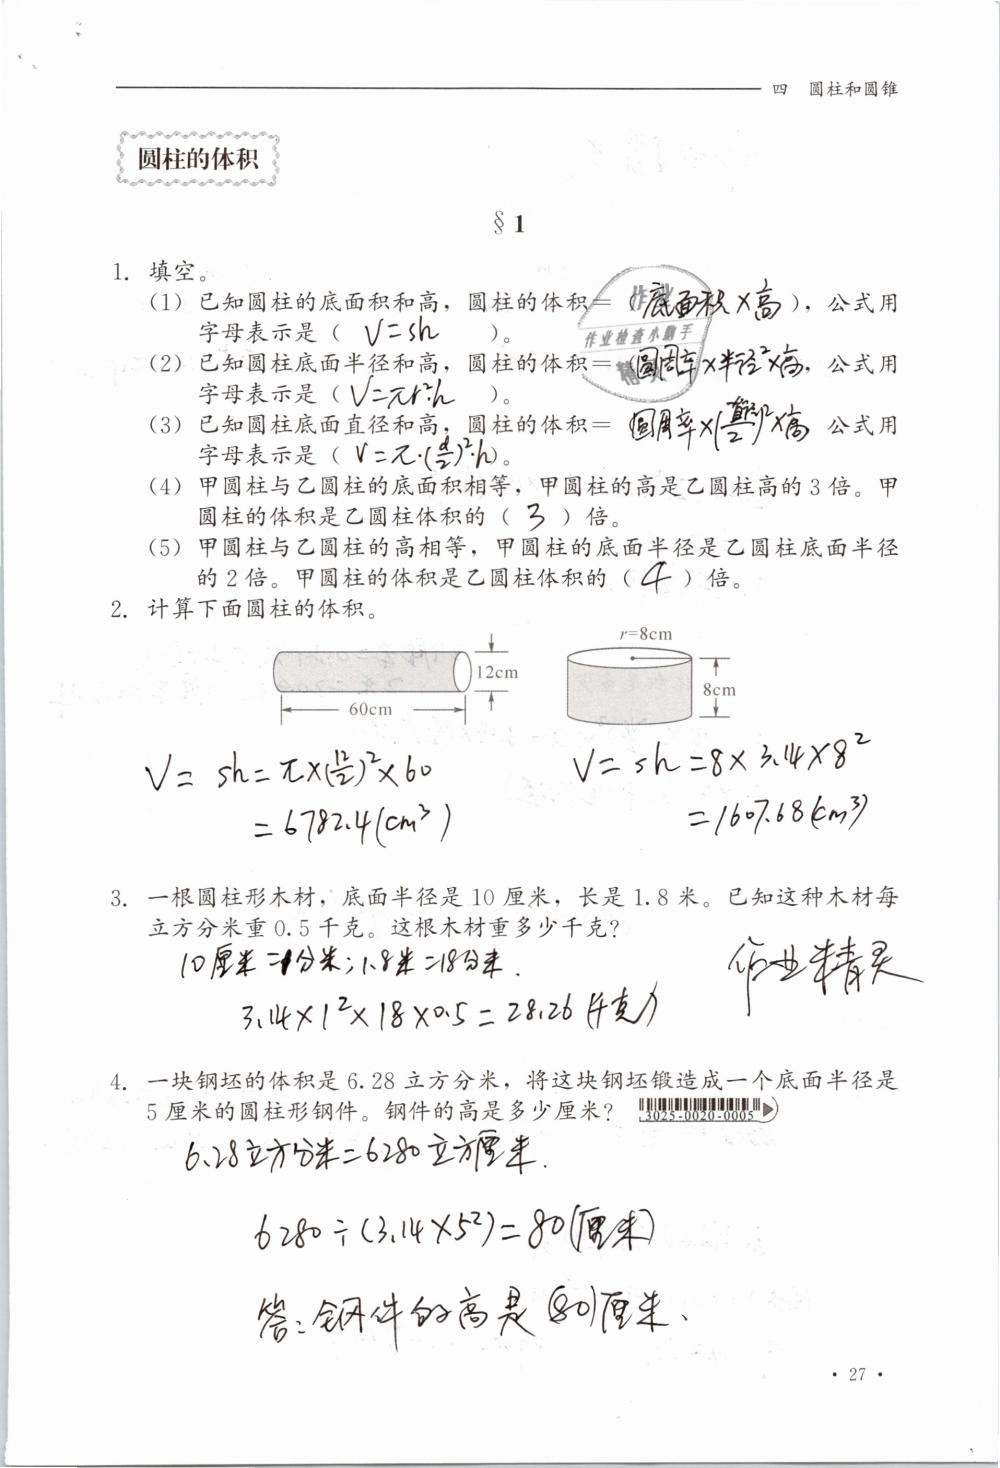 四 圆柱和圆锥
圆柱的体积
§1
1. 填空。
(1) 已知圆柱的底面积和高，圆柱的体积=（底面积×高），公式用
字母表示是（ V=sh ）。
(2) 已知圆柱底面半径和高，圆柱的体积=（圆周率×半径²×高，公式用
字母表示是（V=πr²h ）。
(3) 已知圆柱底面直径和高，圆柱的体积= 圆周率×(直径/2)²×高 公式用
字母表示是（V=π·(d/2)²·h）。
(4) 甲圆柱与乙圆柱的底面积相等，甲圆柱的高是乙圆柱高的3倍。甲
圆柱的体积是乙圆柱体积的（ 3 ）倍。
(5) 甲圆柱与乙圆柱的高相等，甲圆柱的底面半径是乙圆柱底面半径
的2倍。甲圆柱的体积是乙圆柱体积的（ 4 ）倍。
作业检查小助手
2. 计算下面圆柱的体积。
12cm
60cm
r=8cm
8cm
V= sh=π×(12/2)²×60
=6782.4(cm³)
V=sh=8×3.14×8²
=1607.68(cm³)
3. 一根圆柱形木材，底面半径是10厘米，长是1.8米。已知这种木材每
立方分米重0.5千克。这根木材重多少千克？
10厘米=1分米；1.8米=18分米.
3.14×1²×18×0.5=28.26(千克)
作业精灵
4. 一块钢坯的体积是6.28立方分米，将这块钢坯锻造成一个底面半径是
5厘米的圆柱形钢件。钢件的高是多少厘米？
3025-0020-0005
6.28立方分米=6280立方厘米.
6280÷(3.14×5²)=80(厘米)
答：钢件的高是(80)厘米、
·27·